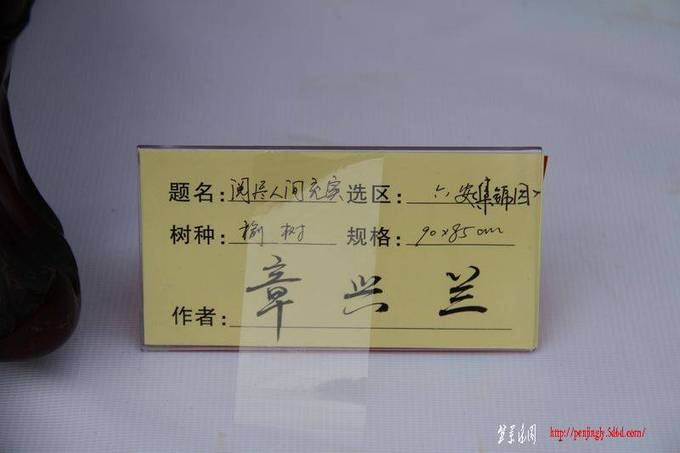 题名：阅尽人间充实 选区：六安集锦园
树种：榆树 规格：90x85cm
作者：章兴兰
http://penjingly.5d6d.com/